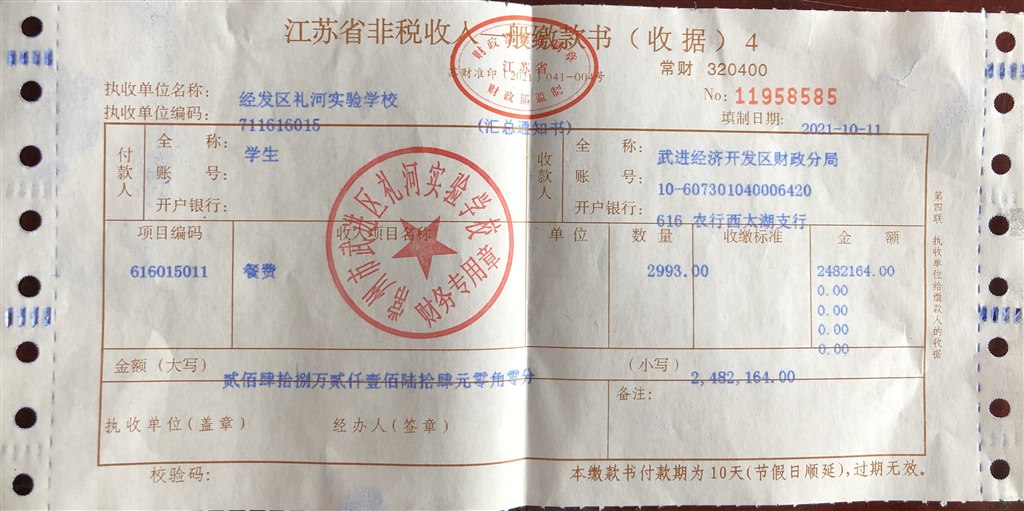 江苏省非税收入一般缴款书（收据）4
财政票据监制章
江苏省
财政部监制
苏财准印（2021）041-004号
常财 320400
No: 11958585
执收单位名称： 经发区礼河实验学校
执收单位编码： 711616015
(汇总通知书)
填制日期： 2021-10-11
付款人
全 称： 学生
账 号：
开户银行：
收款人
全 称： 武进经济开发区财政分局
账 号： 10-607301040006420
开户银行： 616 农行西太湖支行
项目编码 收入项目名称 单 位 数 量 收缴标准 金 额
616015011 餐费 2993.00 2482164.00
0.00
0.00
0.00
0.00
常州市武进区礼河实验学校
财务专用章
金额（大写） 贰佰肆拾捌万贰仟壹佰陆拾肆元零角零分 （小写） 2,482,164.00
执收单位（盖章） 经办人（签章） 备注：
校验码： 本缴款书付款期为10天(节假日顺延),过期无效。
第四联 执收单位给缴款人的收据